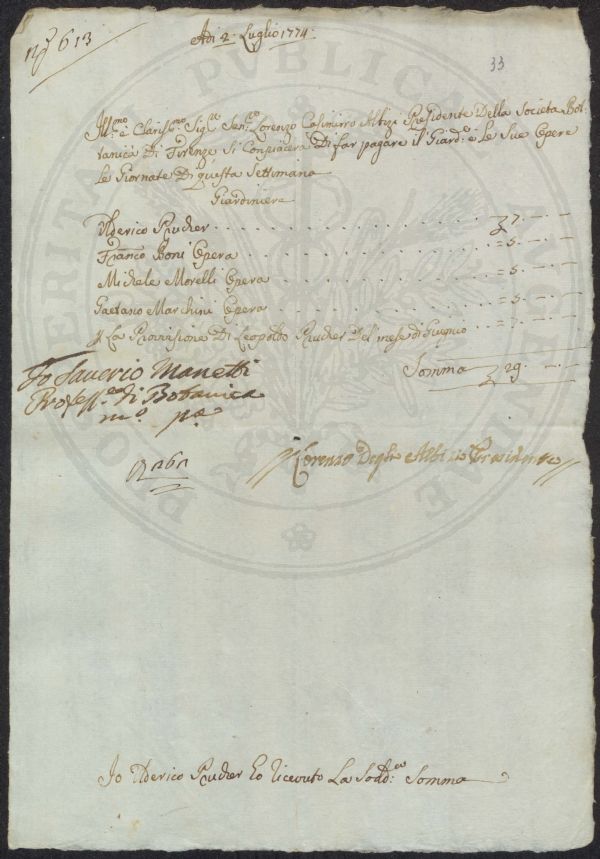 N.º 613
Adi 2. Luglio 1774.
33
Ill.mo e Clariss.mo Sig.re Sen.re Lorenzo Casimirro Albizi Presidente Della Societa Bot-
tanica Di Firenze Si Conpiacerà Di far pagare il Giard.e e le Sue Opere
le Giornate Di questa Settimana
Giardiniere
Ulderico Prucker 7. — —
Franco Boni Opera = 5. — —
Michele Morelli Opera = 5. — —
Gaetano Marchini Opera = 5. — —
La Provisione Di Leopoldo Prucker Del mese di Giugno = 7. — —
Somma 29. — —
Io Saverio Manetti
Profess.re di Botanica
m.o p.a
Lorenzo Degli Albizi Presidente
Io Ulderico Prucker ho ricevuto La Sodd.a Somma
PROSPERITATI PVBLICAE AVGENDAE